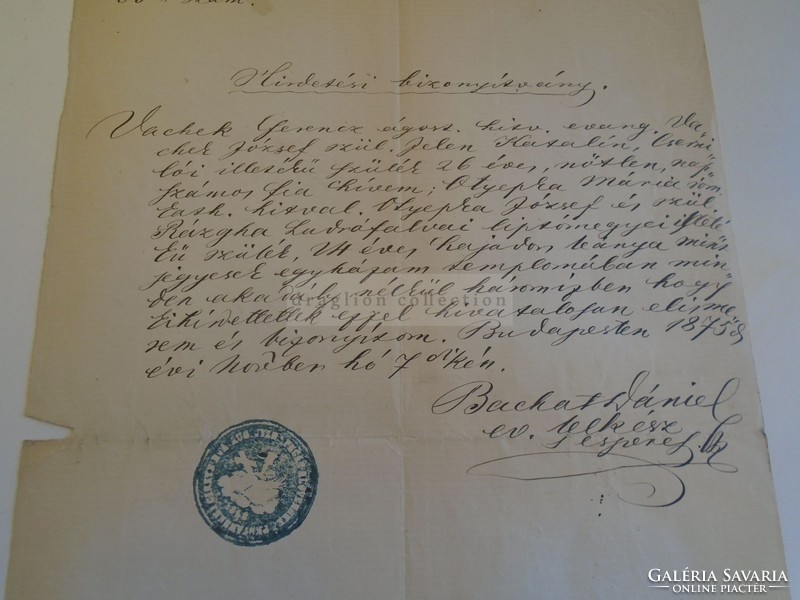 szám.
Hirdetési bizonyítvány.
Vachek Ferencz ágost. hitv. evang. Va-
chek József szül. Jelen Katalin, Csemi
lói illetőrű szülék 26 éves, nőtlen, nap-
számos fia hívem; Otyepka Mária rom.
kath. hitval. Otyepka József és szül.
Rázgha Ludrófalvai liptómegyei illető
ű szülék, 24 éves hajadon leánya mint
jegyesek egyházam templomában min-
den akadály nélkül háromízben hogy
kihirdettettek ezzel hivatalosan elisme
rem és bizonyítom. Budapesten 1875dik
évi november hó 7dikén.
Bachat Dániel
ev. lelkész
s esperes. sk
draglion collection
GALÉRIA SAVARIA
ONLINE PIACTÉR